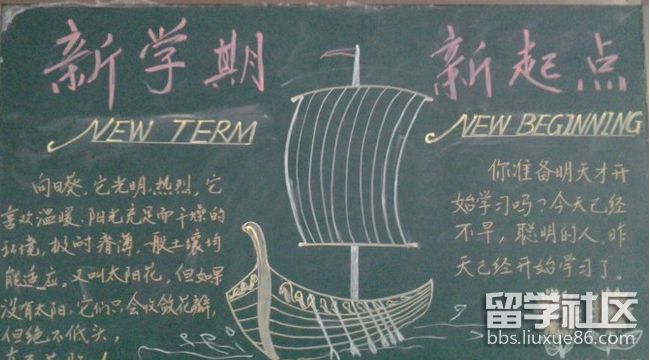 新学期
新起点
NEW TERM
NEW BEGINNING
向日葵,它光明,热烈,它
喜欢温暖、阳光充足而干燥的
环境,极耐瘠薄,一般土壤均
能适应。又叫太阳花,但如果
没有太阳,它们只会收敛花瓣,
但绝不低头,
你准备明天才开
始学习吗?今天已经
不早,聪明的人,昨
天已经开始学习了。
留学社区
bbs.liuxue86.com